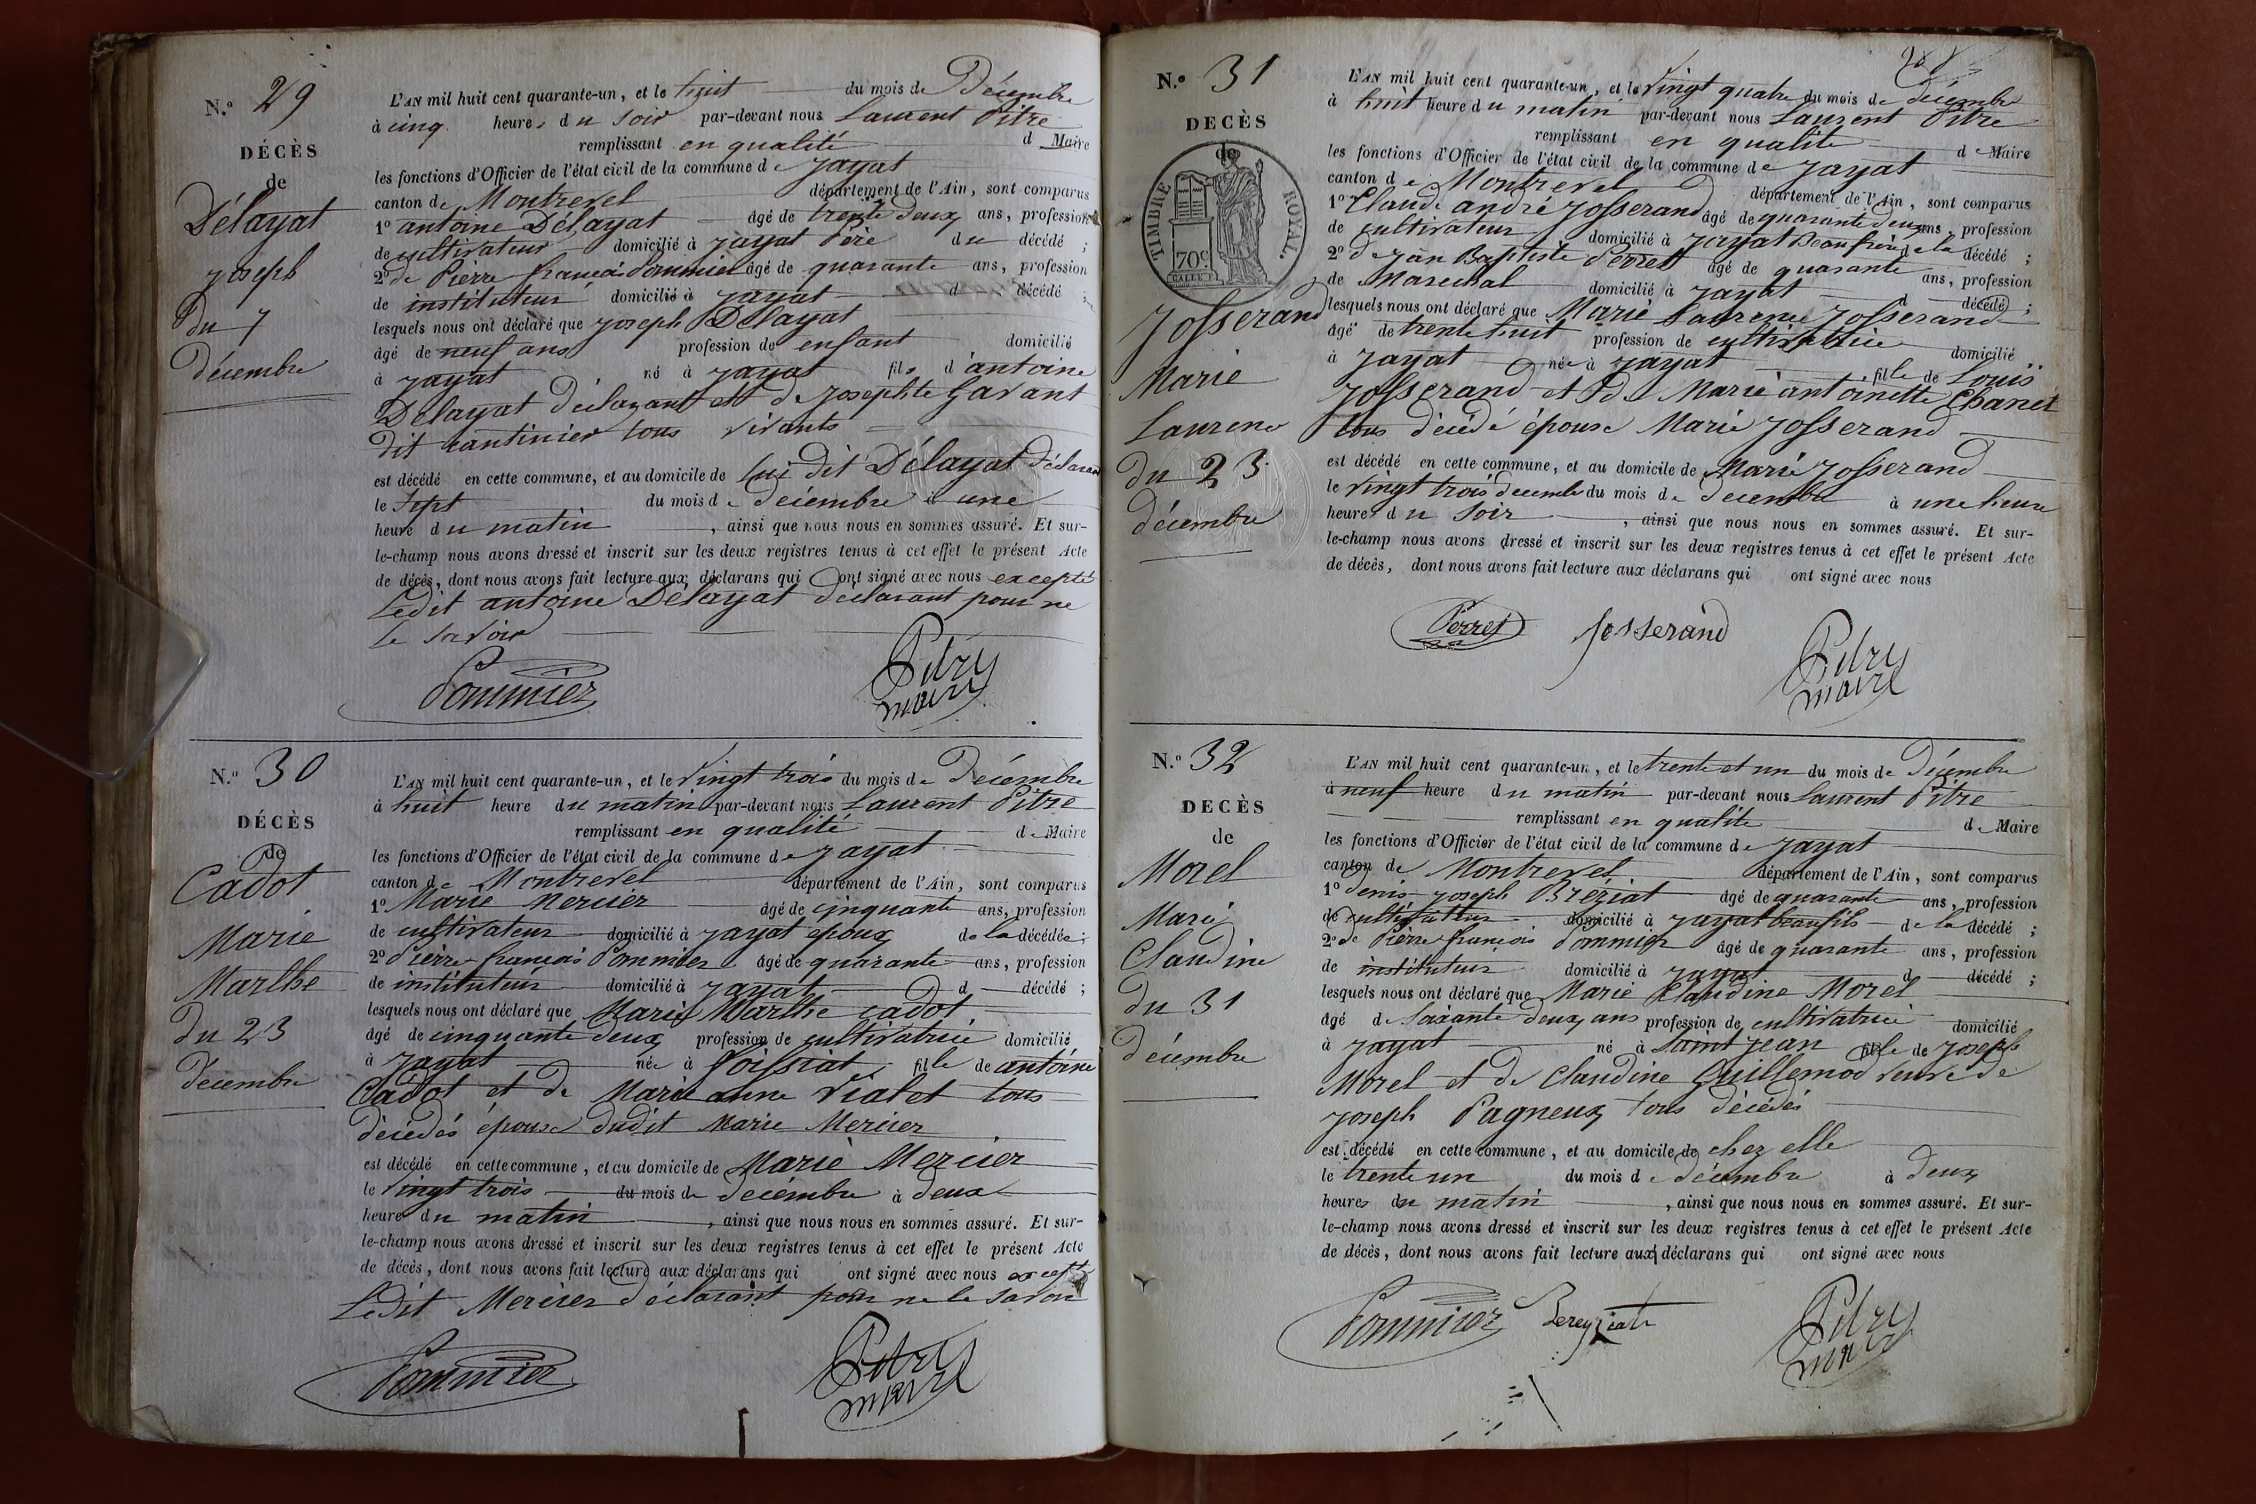 N.º 29
DÉCÈS
de
Délayat
joseph
du 7
décembre
L'AN mil huit cent quarante-un, et le huit du mois de Décembre
à cinq heures du soir par-devant nous Laurent Pitre
remplissant en qualité d Maire
les fonctions d'Officier de l'état civil de la commune de jayat
canton de Montrevel département de l'Ain, sont comparus
1º antoine Délayat âgé de trente deux ans, profession
de cultivateur domicilié à jayat Père du décédé ;
2º de Pierre françois Pommier âgé de quarante ans, profession
de instituteur domicilié à jayat d décédé ;
lesquels nous ont déclaré que joseph Délayat
âgé de neuf ans profession de enfant domicilié
à jayat né à jayat fils d'antoine
Délayat déclarant et de josephte Gavant
dit cantinier tous vivants
est décédé en cette commune, et au domicile de lui dit Délayat déclarant
le sept du mois de décembre à une
heure du matin, ainsi que nous nous en sommes assuré. Et sur-
le-champ nous avons dressé et inscrit sur les deux registres tenus à cet effet le présent Acte
de décès, dont nous avons fait lecture aux déclarans qui ont signé avec nous excepté
Ledit antoine Délayat déclarant pour ne
le savoir
Pommier Pitre
maire
N.º 30
DÉCÈS
de
Cadot
Marie
Marthe
du 23
décembre
L'AN mil huit cent quarante-un, et le vingt trois du mois de Décembre
à huit heure du matin par-devant nous Laurent Pitre
remplissant en qualité de Maire
les fonctions d'Officier de l'état civil de la commune de jayat
canton de Montrevel département de l'Ain, sont comparus
1º Marie Mercier âgé de cinquante ans, profession
de cultivateur domicilié à jayat epoux de la décédée ;
2º Pierre françois Pommier âgé de quarante ans, profession
de instituteur domicilié à jayat d décédé ;
lesquels nous ont déclaré que Marie Marthe cadot
âgé de cinquante deux profession de cultivatrice domicilié
à jayat née à foissiat fille de antoine
Cadot et de Marie anne Vialet tous
décédés épouse dudit Marie Mercier
est décédé en cette commune, et au domicile de Marie Mercier
le vingt trois du mois de décembre à deux
heure du matin, ainsi que nous nous en sommes assuré. Et sur-
le-champ nous avons dressé et inscrit sur les deux registres tenus à cet effet le présent Acte
de décès, dont nous avons fait lecture aux déclarans qui ont signé avec nous except
Ledit Mercier déclarant pour ne le savoir
Pommier Pitre
maire
N.º 31
DECÈS
de
TIMBRE ROYAL.
70c
Josserand
Marie
Laurence
du 23
décembre
L'AN mil huit cent quarante-un, et le vingt quatre du mois de décembre
à huit heure du matin par-devant nous Laurent Pitre
remplissant en qualité de Maire
les fonctions d'Officier de l'état civil de la commune de jayat
canton de Montrevel département de l'Ain, sont comparus
1º Claude andré josserand âgé de quarante deux ans, profession
de cultivateur domicilié à jayat Beau frère de la décédé ;
2º de jean Baptiste Perret âgé de quarante ans, profession
de Marechal domicilié à jayat d décédé ;
lesquels nous ont déclaré que Marie Laurence josserand
âgé de trente huit profession de cultivatrice domicilié
à jayat née à jayat fille de Louis
josserand et de Marie antoinette Chanel
tous décédé épouse Marie josserand
est décédé en cette commune, et au domicile de Marie josserand
le vingt trois decembre du mois de decembre à une heure
heure du soir, ainsi que nous nous en sommes assuré. Et sur-
le-champ nous avons dressé et inscrit sur les deux registres tenus à cet effet le présent Acte
de décès, dont nous avons fait lecture aux déclarans qui ont signé avec nous
Perret josserand Pitre
maire
N.º 32
DECÈS
de
Morel
Marie
Claudine
du 31
décembre
L'AN mil huit cent quarante-un, et le trente et un du mois de Décembre
à neuf heure du matin par-devant nous Laurent Pitre
remplissant en qualité de Maire
les fonctions d'Officier de l'état civil de la commune de jayat
canton de Montrevel département de l'Ain, sont comparus
1º denis joseph Breziat âgé de quarante ans, profession
de cultivateur domicilié à jayat beaufils de la décédé ;
2º de Pierre françois Pommier âgé de quarante ans, profession
de instituteur domicilié à jayat d décédé ;
lesquels nous ont déclaré que Marie Claudine Morel
âgé de soixante deux ans profession de cultivatrice domicilié
à jayat né à saint jean fille de joseph
Morel et de Claudine Guillemod veuve de
joseph Pagneux tous décédés
est décédé en cette commune, et au domicile de chez elle
le trente un du mois de décembre à deux
heures du matin, ainsi que nous nous en sommes assuré. Et sur-
le-champ nous avons dressé et inscrit sur les deux registres tenus à cet effet le présent Acte
de décès, dont nous avons fait lecture aux déclarans qui ont signé avec nous
Pommier Bereyziat Pitre
maire